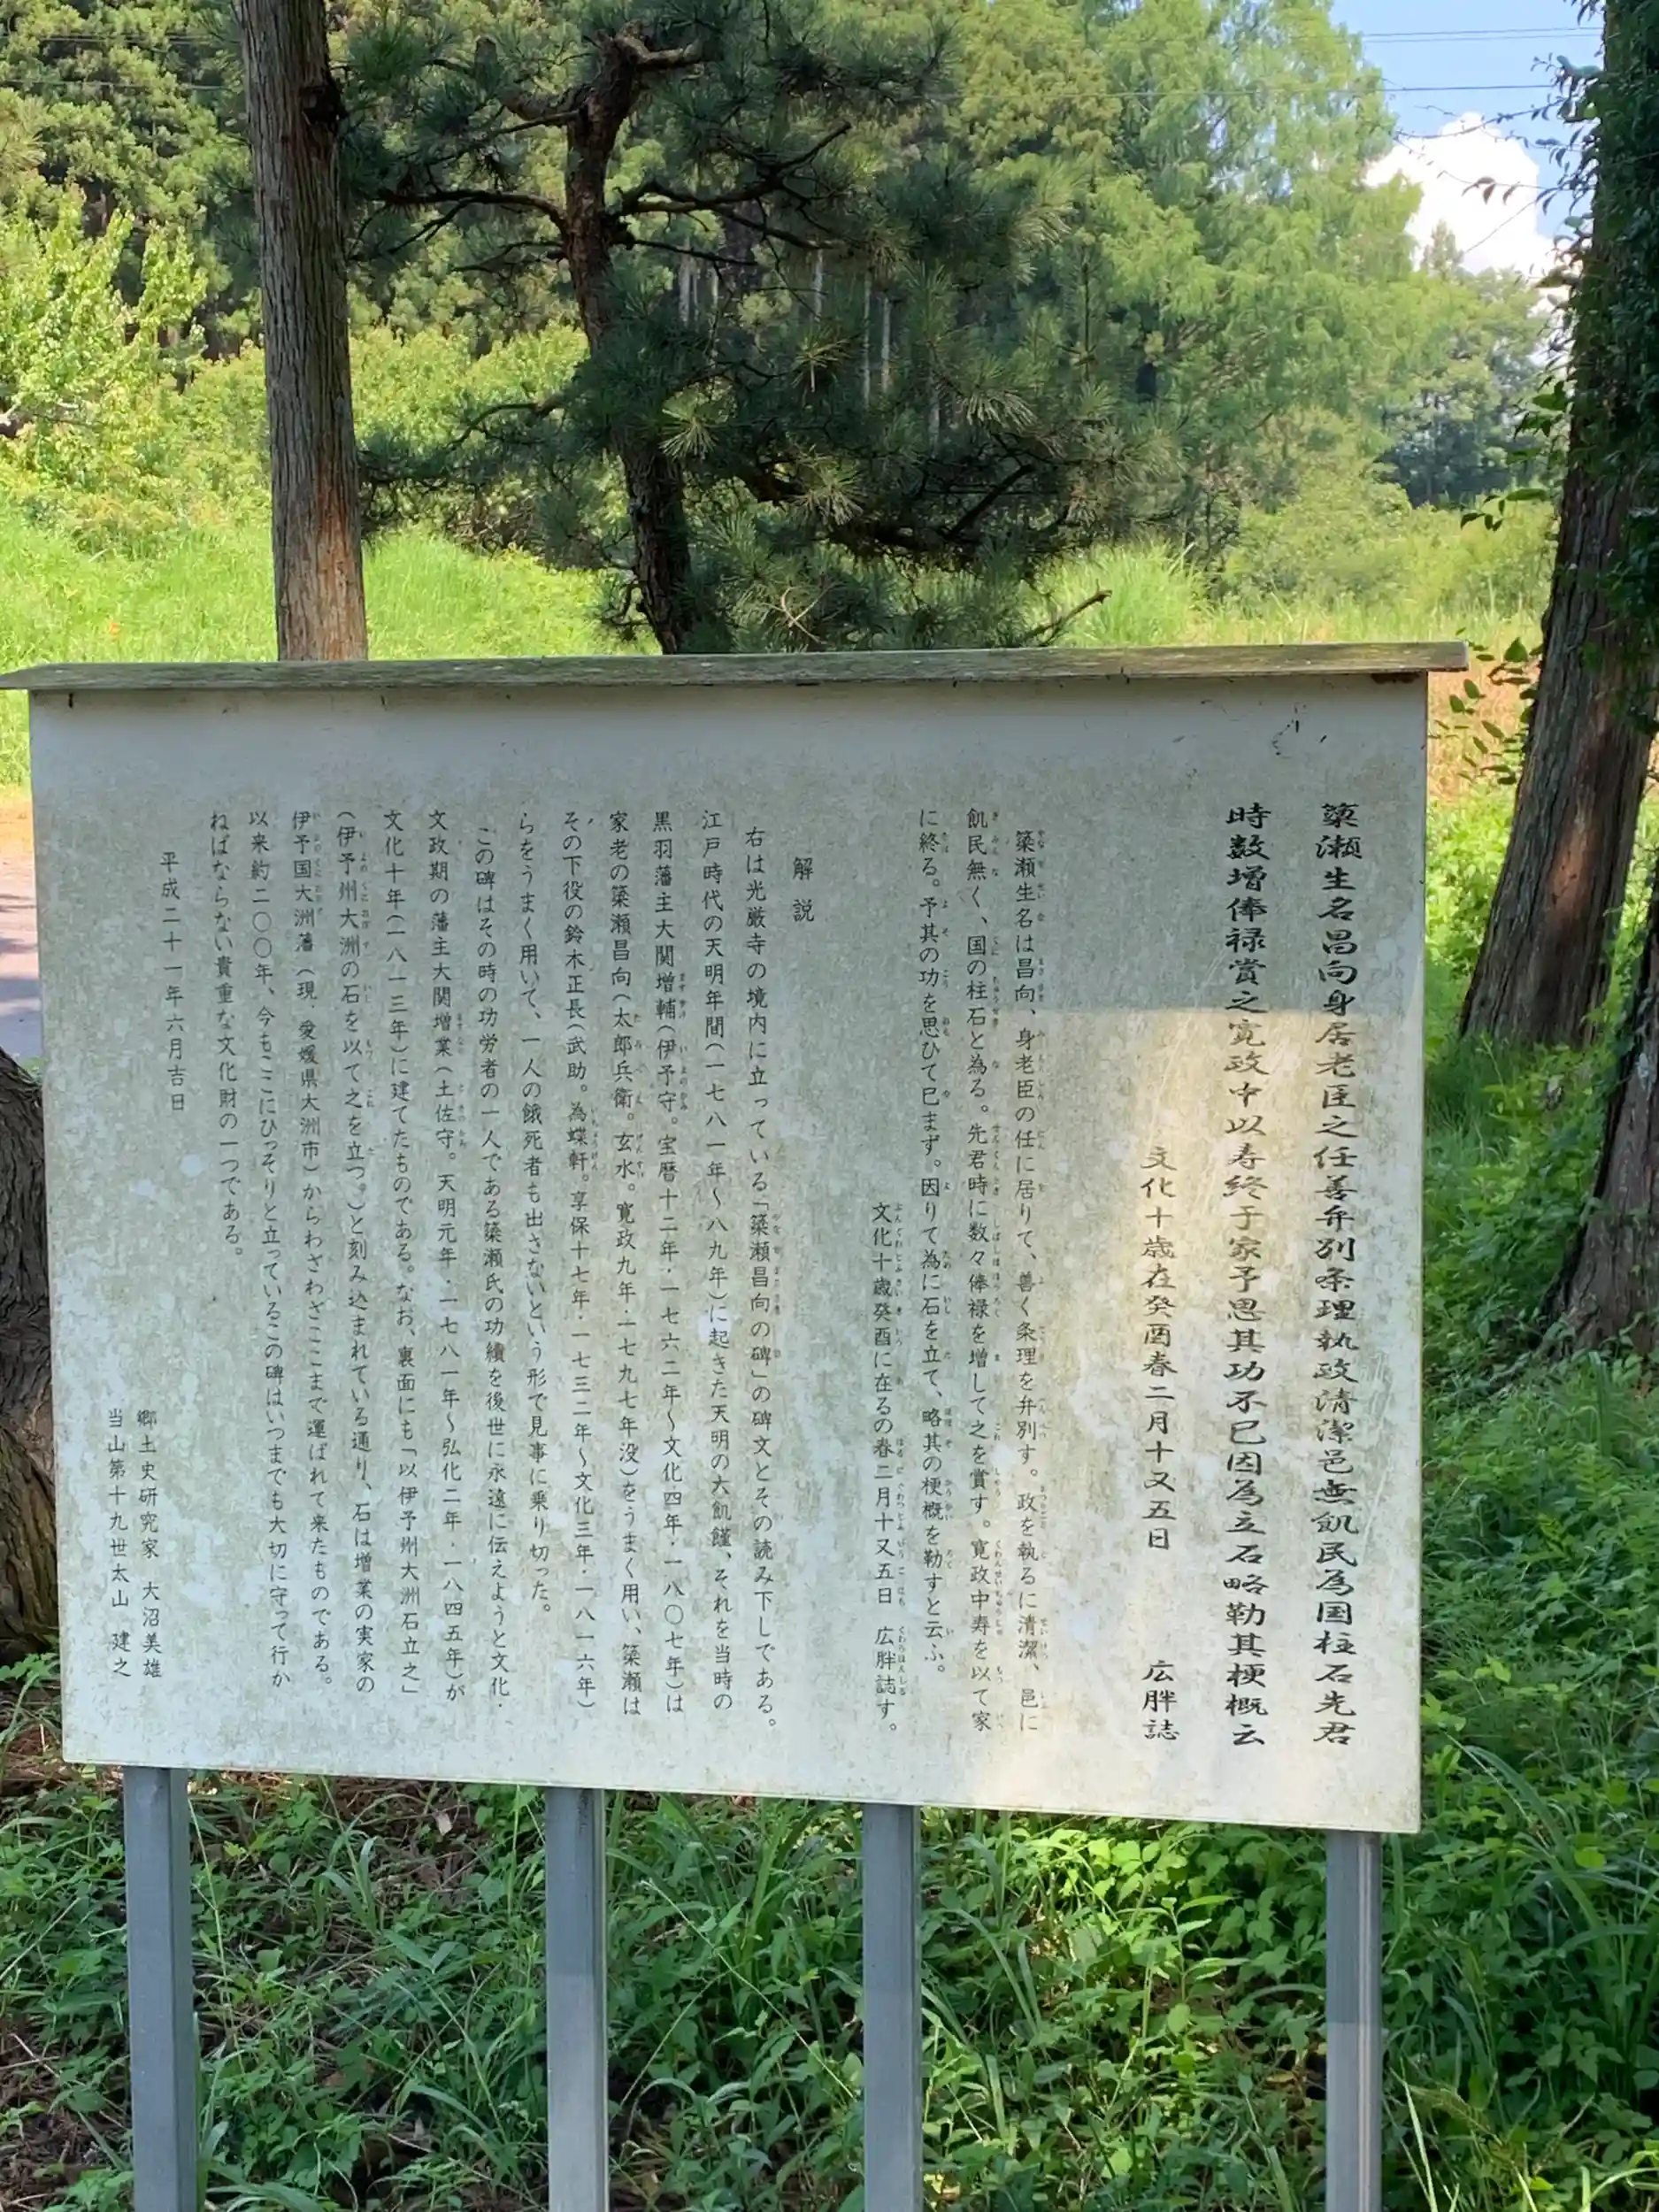 簗瀬生名昌向身居老臣之任善弁別条理執政清潔邑無飢民為国柱石先君
時数増俸禄賞之寛政中以寿終于家予思其功不已因為立石略勒其梗概云
文化十歳在癸酉春二月十又五日 広胖誌
簗瀬生名は昌向、身老臣の任に居りて、善く条理を弁別す。政を執るに清潔、邑に
飢民無く、国の柱石と為る。先君時に数々俸禄を増して之を賞す。寛政中寿を以て家
に終る。予其の功を思ひて已まず。因りて為に石を立て、略其の梗概を勒すと云ふ。
文化十歳癸酉に在るの春二月十又五日 広胖誌す。
解説
右は光厳寺の境内に立っている「簗瀬昌向の碑」の碑文とその読み下しである。
江戸時代の天明年間(一七八一年〜八九年)に起きた天明の大飢饉、それを当時の
黒羽藩主大関増輔(伊予守。宝暦十二年・一七六二年〜文化四年・一八〇七年)は
家老の簗瀬昌向(太郎兵衛。玄水。寛政九年・一七九七年没)をうまく用い、簗瀬は
その下役の鈴木正長(武助。為蝶軒。享保十七年・一七三二年〜文化三年・一八一六年)
らをうまく用いて、一人の餓死者も出さないという形で見事に乗り切った。
この碑はその時の功労者の一人である簗瀬氏の功績を後世に永遠に伝えようと文化・
文政期の藩主大関増業(土佐守。天明元年・一七八一年〜弘化二年・一八四五年)が
文化十年(一八一三年)に建てたものである。なお、裏面にも「以伊予州大洲石立之」
(伊予州大洲の石を以て之を立つ。)と刻み込まれている通り、石は増業の実家の
伊予国大洲藩(現・愛媛県大洲市)からわざわざここまで運ばれて来たものである。
以来約二〇〇年、今もここにひっそりと立っているこの碑はいつまでも大切に守って行か
ねばならない貴重な文化財の一つである。
平成二十一年六月吉日
郷土史研究家 大沼美雄
当山第十九世太山 建之